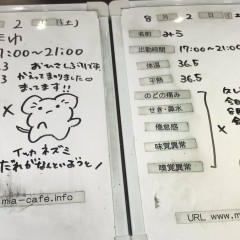 2 (土)
17:00〜21:00
おひさしぶりです。
かえってまりました
まってます!!
イッカ ネズミ
だれがなんといおうと！
mia-cafe.info
8月 2日(土)
名前 みう
出勤時間 17:00〜21:00
体温 36.5
平熱 36.5
のどの痛み
せき・鼻水
倦怠感
味覚異常
嗅覚異常
URL www.m